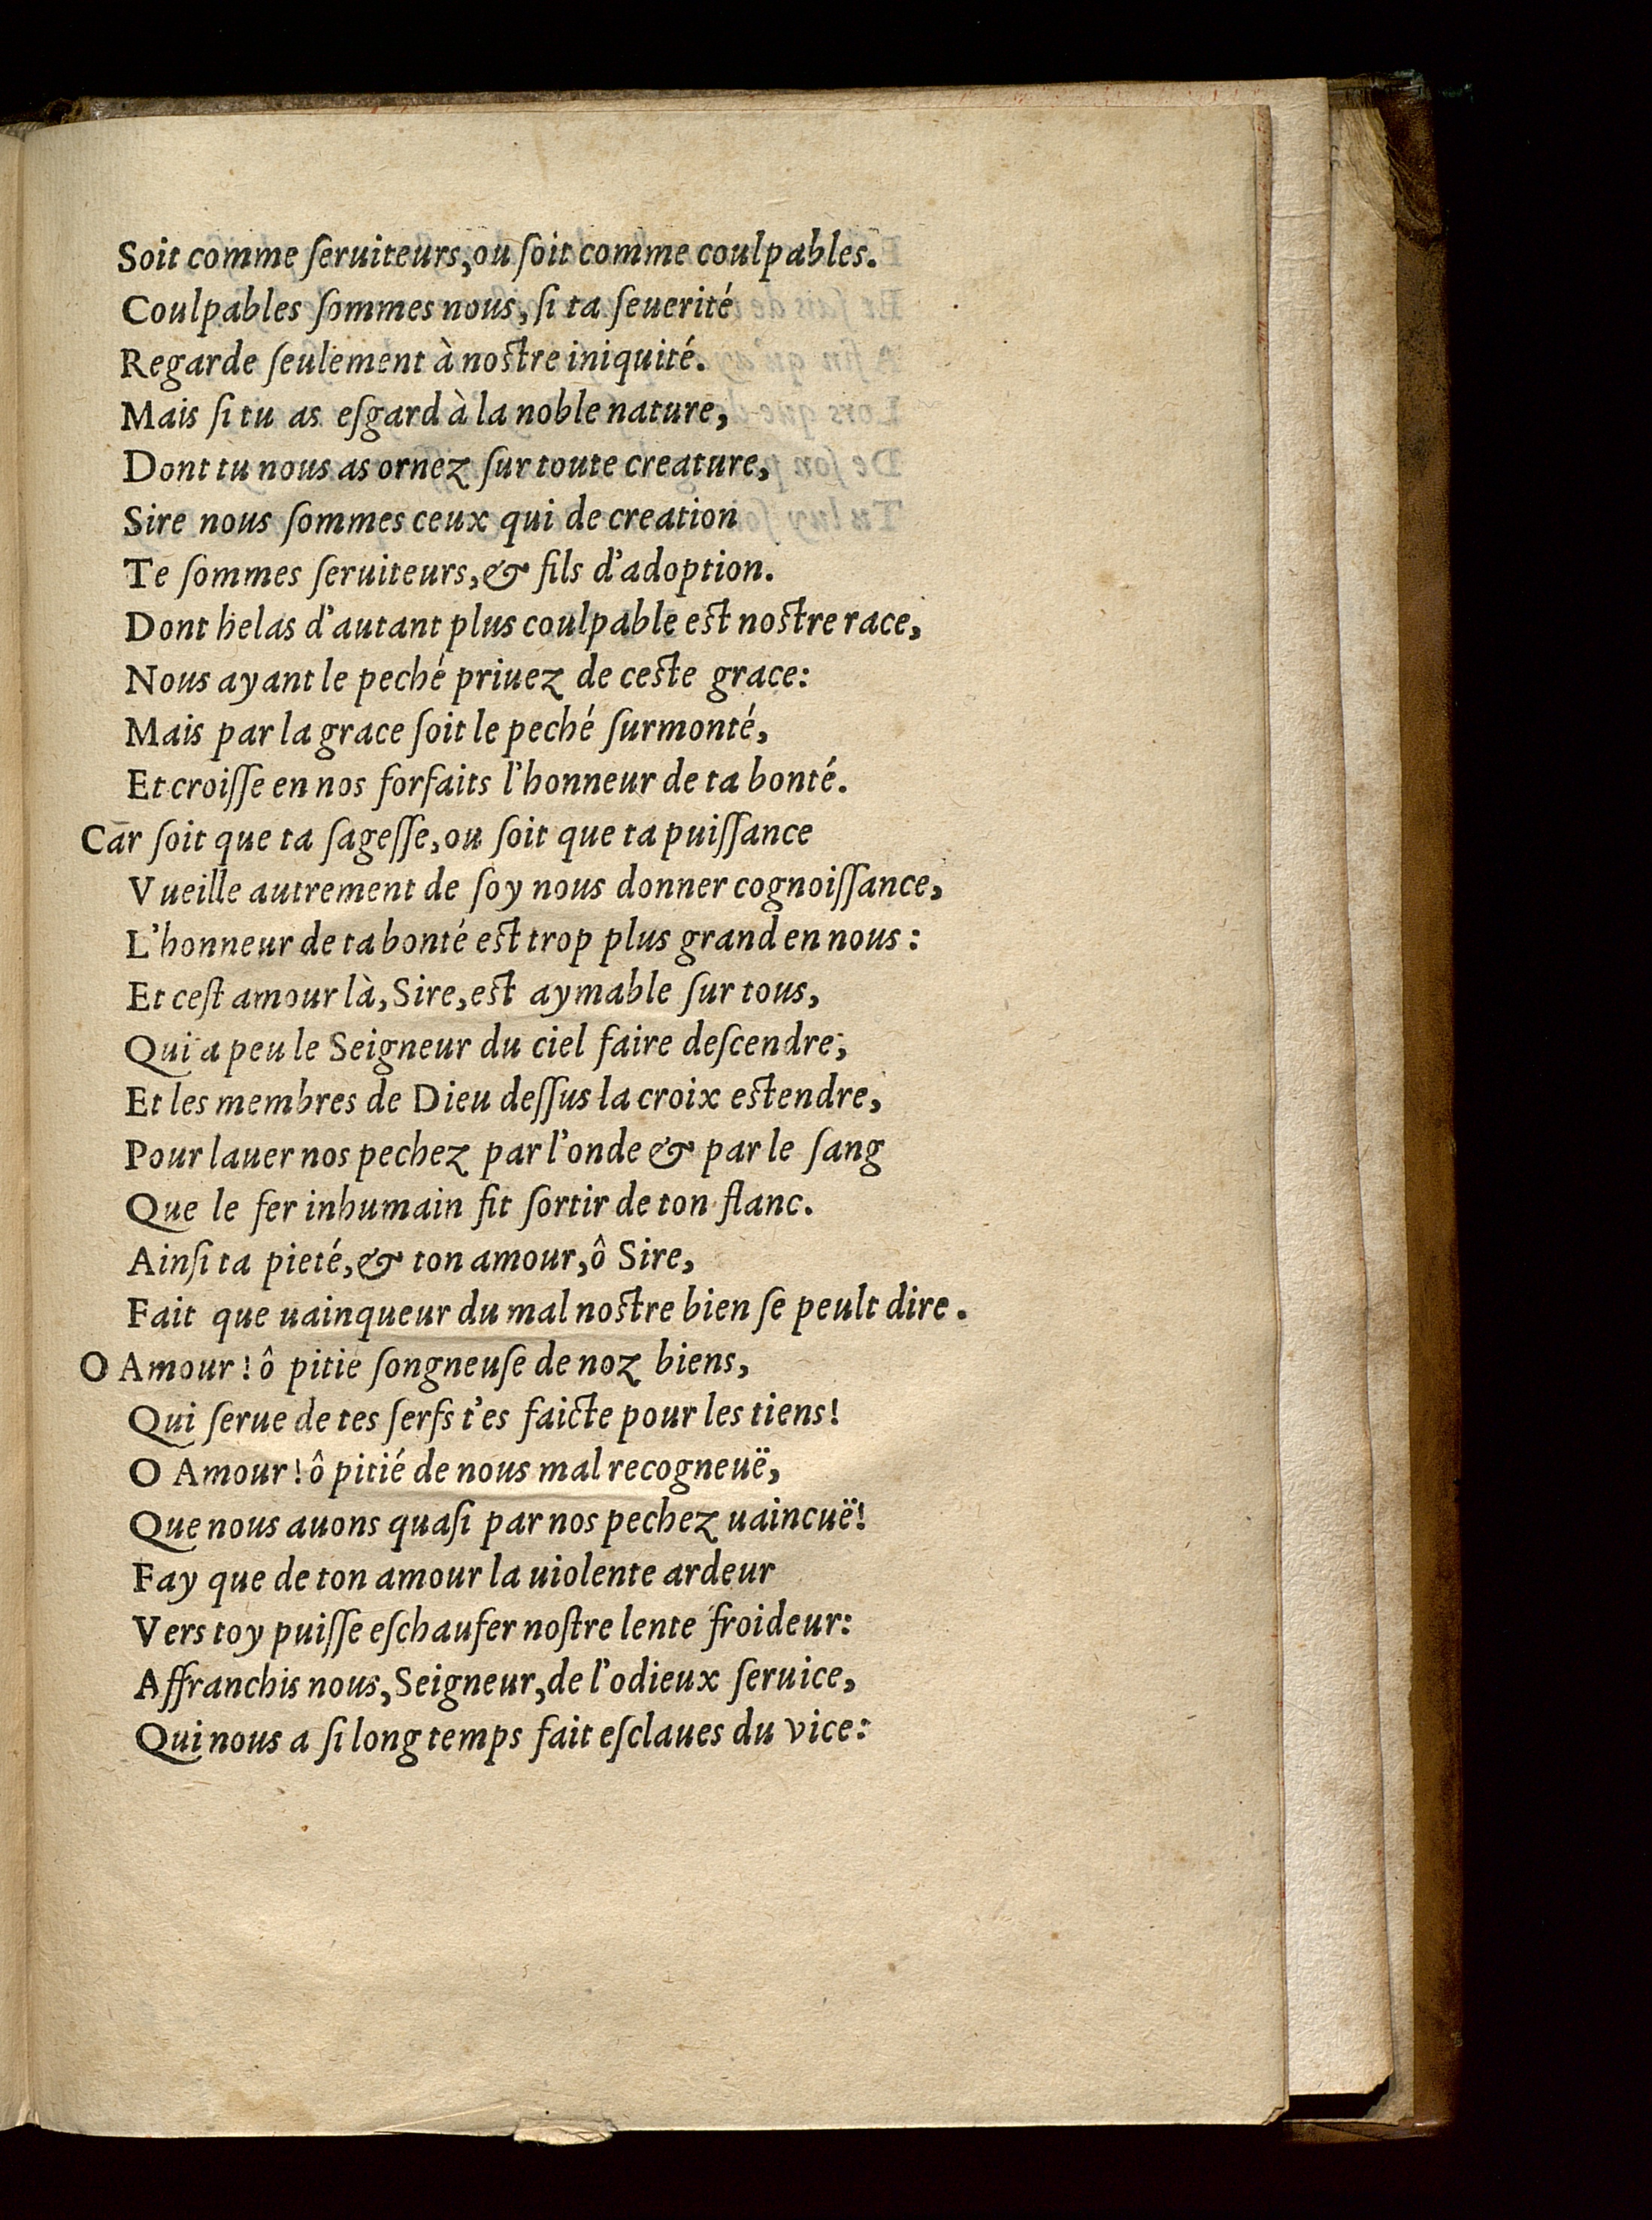 Soit comme ſeruiteurs, ou ſoit comme coulpables.
Coulpables ſommes nous, ſi ta ſeuerité
Regarde ſeulement à noſtre iniquité.
Mais ſi tu as eſgard à la noble nature,
Dont tu nous as ornez ſur toute creature,
Sire nous ſommes ceux qui de creation
Te ſommes ſeruiteurs, & fils d'adoption.
Dont helas d'autant plus coulpable eſt noſtre race,
Nous ayant le peché priuez de ceſte grace:
Mais par la grace ſoit le peché ſurmonté,
Et croiſſe en nos forfaits l'honneur de ta bonté.
Car ſoit que ta ſageſſe, ou ſoit que ta puiſſance
Vueille autrement de ſoy nous donner cognoiſſance,
L'honneur de ta bonté eſt trop plus grand en nous:
Et ceſt amour là, Sire, eſt aymable ſur tous,
Qui a peu le Seigneur du ciel faire deſcendre,
Et les membres de Dieu deſſus la croix eſtendre,
Pour lauer nos pechez par l'onde & par le ſang
Que le fer inhumain fit ſortir de ton flanc.
Ainſi ta pieté, & ton amour, ô Sire,
Fait que uainqueur du mal noſtre bien ſe peult dire.
O Amour! ô pitie ſongneuſe de noz biens,
Qui ſerue de tes ſerfs t'es faicte pour les tiens!
O Amour! ô pitié de nous mal recogneuë,
Que nous auons quaſi par nos pechez uaincuë!
Fay que de ton amour la uiolente ardeur
Vers toy puiſſe eſchaufer noſtre lente froideur:
Affranchis nous, Seigneur, de l'odieux ſeruice,
Qui nous a ſi long temps fait eſclaues du vice: